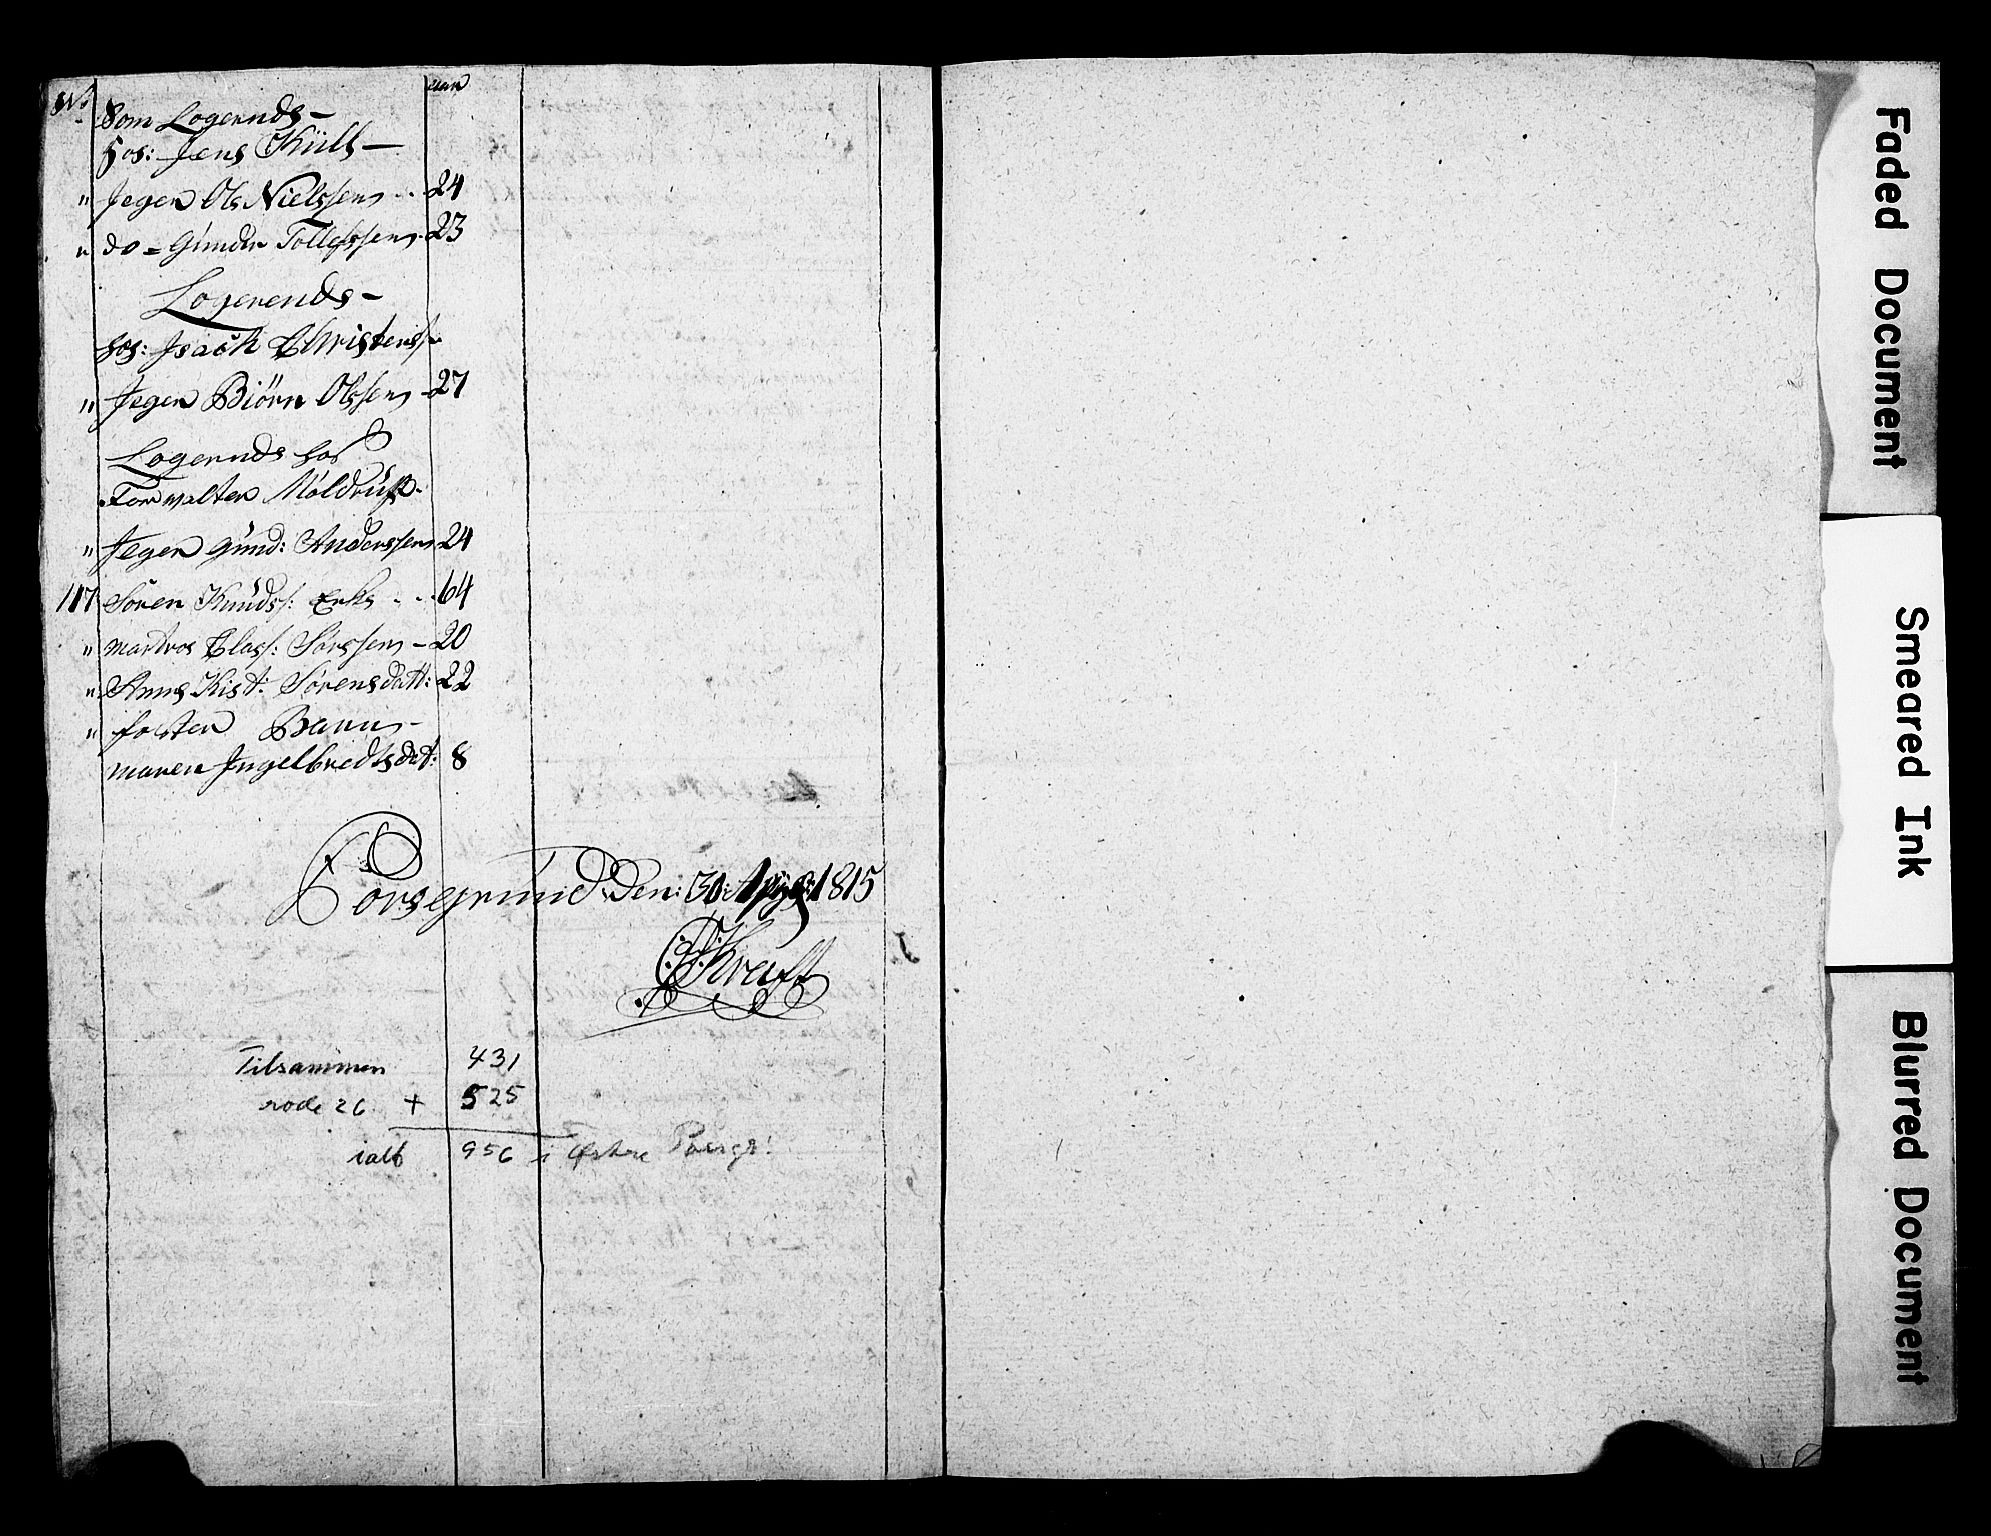 No aar
Som Logernds –
hos: Jens Küll –
" Jeger Ols Nielssen . . 24
" do – Gunder Tollefssen . 23
Logerends –
hos: Isach Christenss:
" Jeger Biörn Olssen – 27
Logernds hos
Forwalter Möldrup.
" Jeger günd: Anderssen 24
117 Sören Knüdss: Enke . . 64
" matros Class: Sörssen – 20
" Anne Kist: Sörensdatt: 22
" foster Barn –
maren Ingelbredtsdat: 8
Porsegrund Den: 30: 1815
Kraft
Tilsammen 431
rode 26 + 525
ialt 956 i Østre Porsgr!
Faded Document
Smeared Ink
Blurred Document